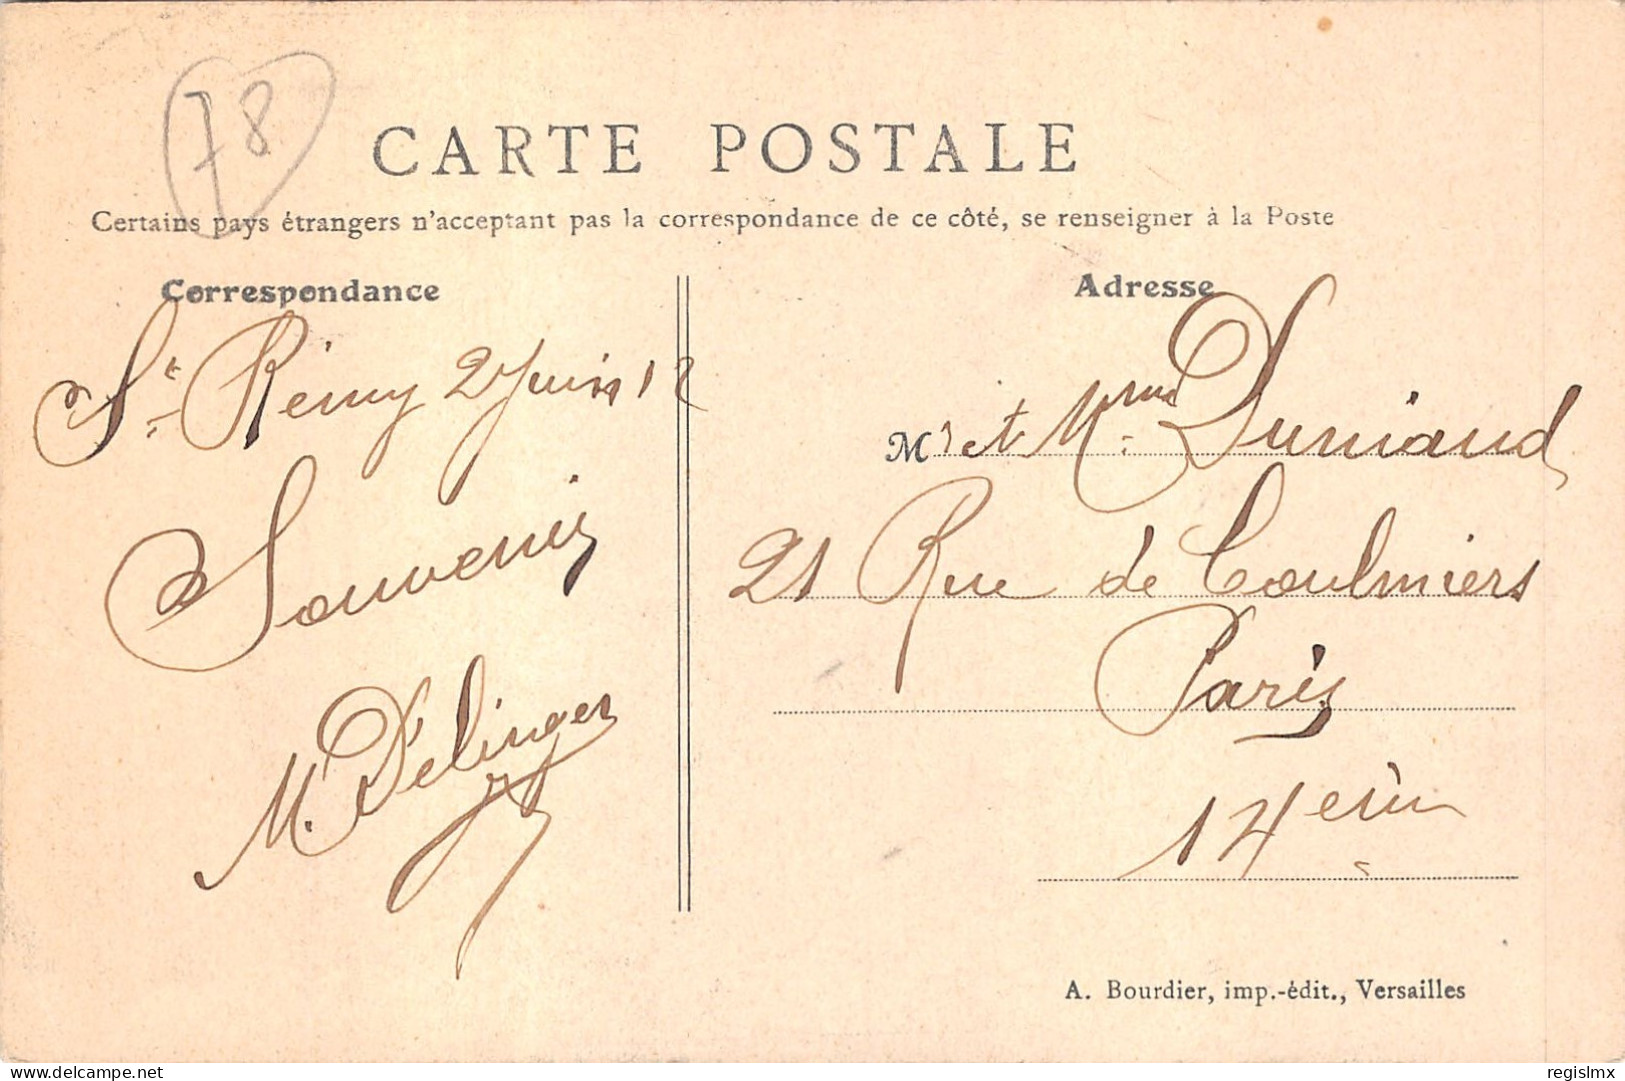 78
CARTE POSTALE
Certains pays étrangers n'acceptant pas la correspondance de ce côté, se renseigner à la Poste
Correspondance
St Rémy 2 Juin 12
Souvenir
M. Delinger
Adresse
Mr et Mme Duniaud
21 Rue de Coulmiers
Paris
14 eme
A. Bourdier, imp.-édit., Versailles
delcampe.net
regislmx